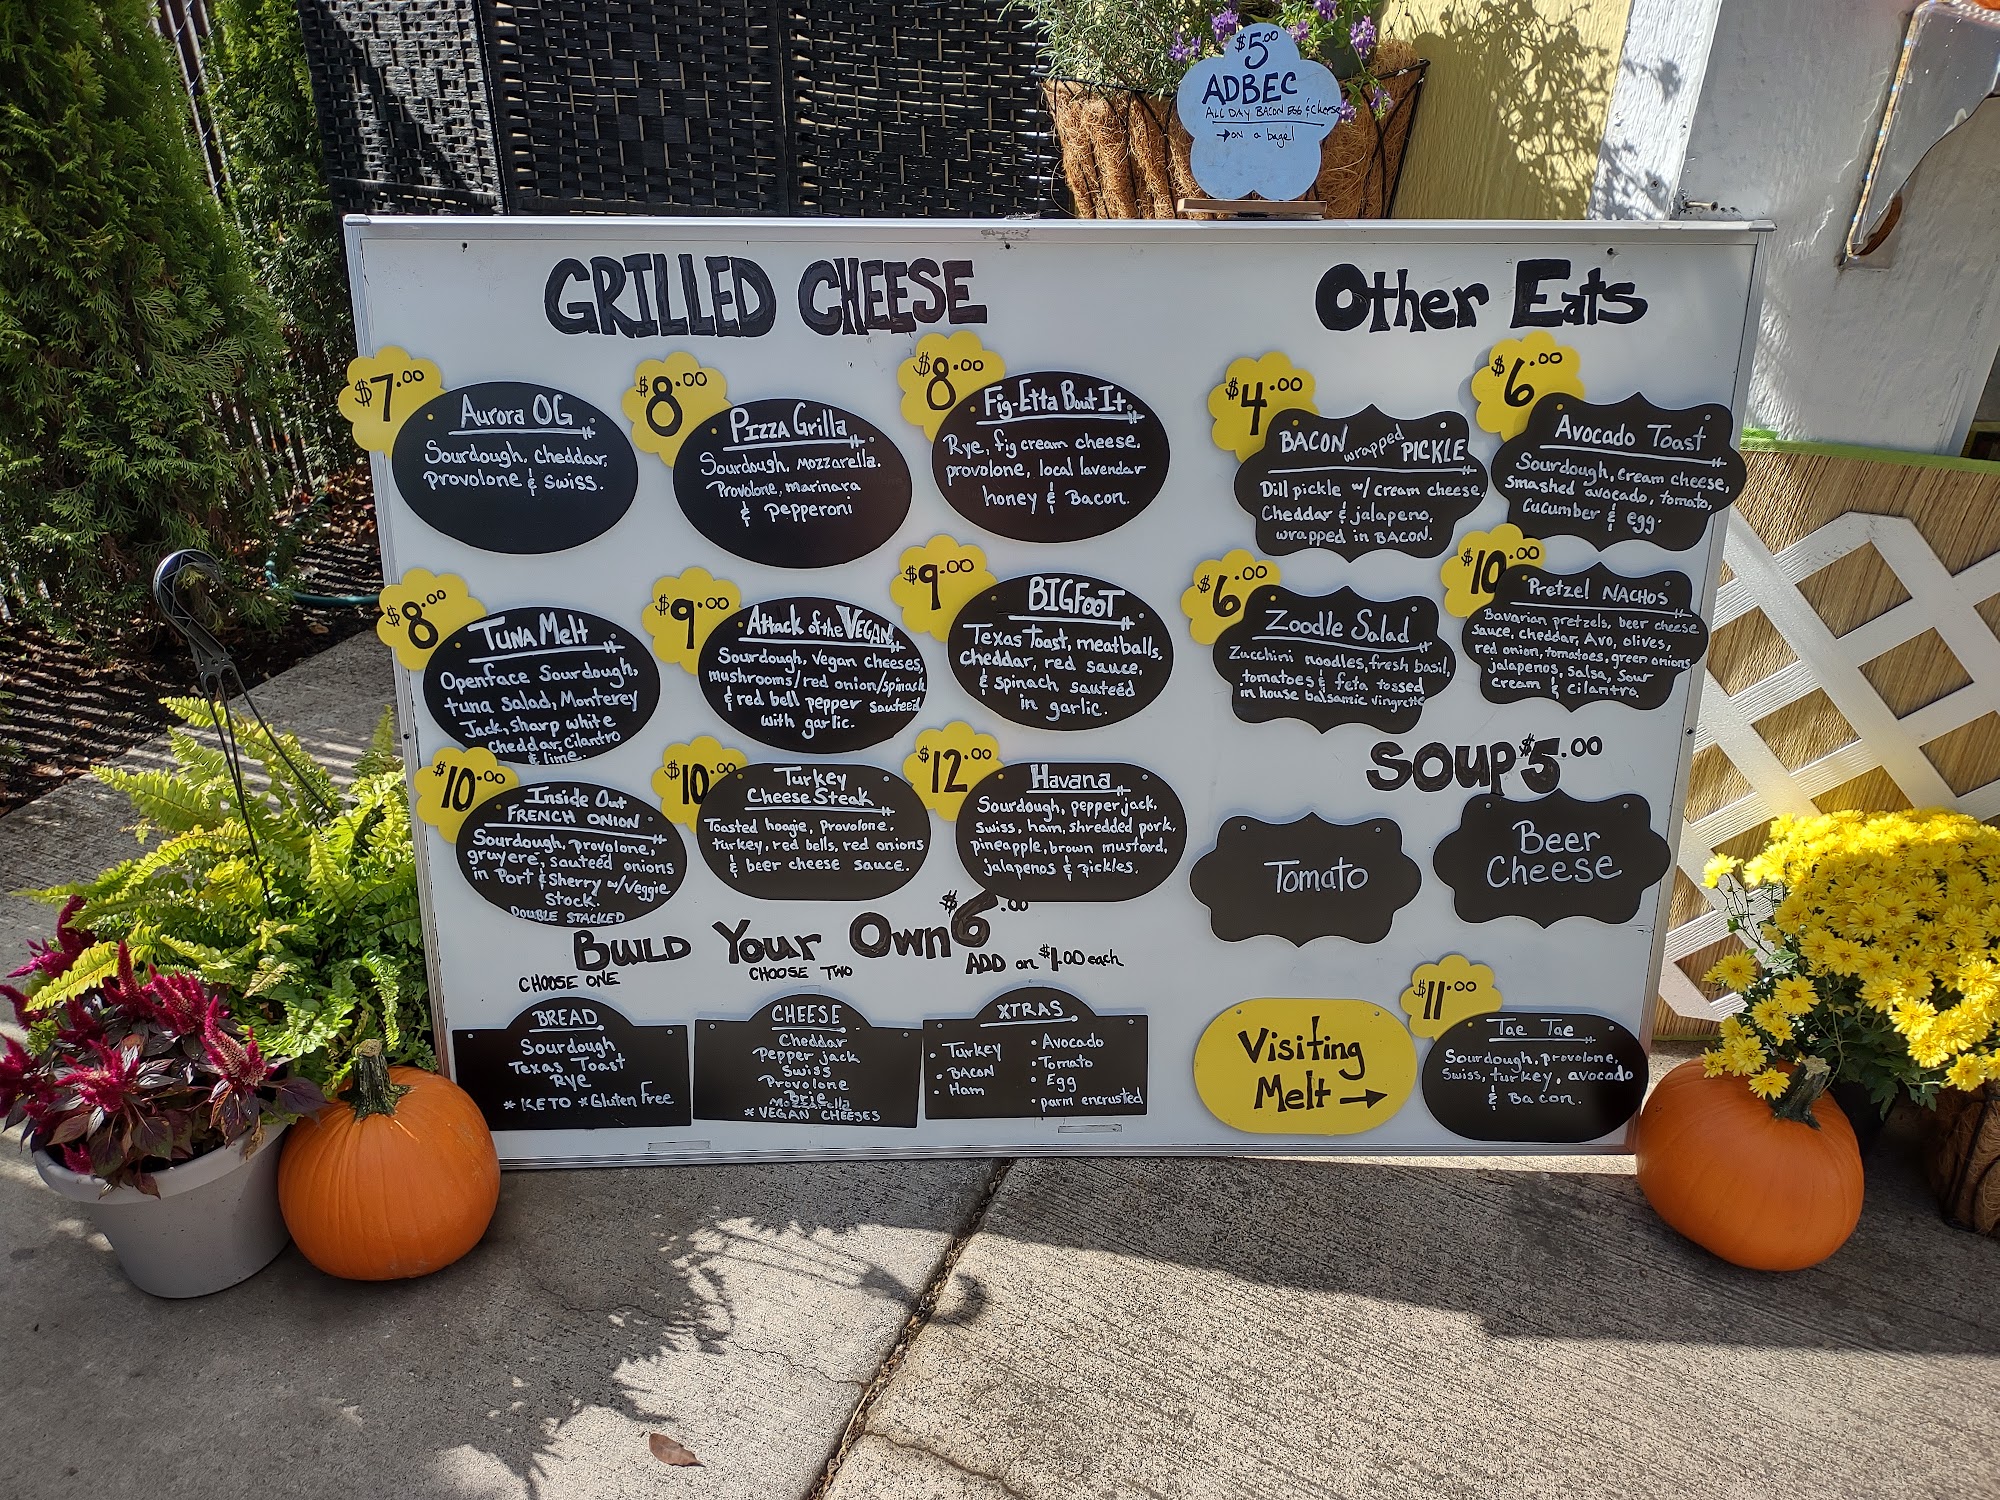 $5.00
ADBEC
ALL DAY BACON EGG & Cheese
→on a bagel
GRILLED CHEESE
$7.00
Aurora OG
Sourdough, cheddar,
provolone & swiss.
$8.00
Pizza Grilla
Sourdough, mozzarella.
Provolone, marinara
& pepperoni
$8.00
Fig-Etta Bout It
Rye, fig cream cheese,
provolone, local lavendar
honey & Bacon.
$8.00
Tuna Melt
Openface Sourdough,
tuna salad, Monterey
Jack, sharp white
cheddar, cilantro
& lime.
$9.00
Attack of the VEGAN
Sourdough, Vegan cheeses,
mushrooms/red onion/spinach
& red bell pepper sauteed
with garlic.
$9.00
BIGFOOT
Texas Toast, meatballs,
cheddar, red sauce,
& spinach sautéed
in garlic.
$10.00
Inside Out
FRENCH ONION
Sourdough, provolone,
gruyere, sautéed onions
in Port & Sherry w/Veggie
Stock.
DOUBLE STACKED
$10.00
Turkey
Cheese Steak
Toasted hoagie, provolone,
turkey, red bells, red onions
& beer cheese sauce.
$12.00
Havana
Sourdough, pepper jack,
Swiss, ham, shredded pork,
pineapple, brown mustard,
jalapenos & pickles.
Build Your Own $6.00
ADD on $1.00 each
CHOOSE ONE
BREAD
Sourdough
Texas Toast
Rye
* KETO *Gluten Free
CHOOSE TWO
CHEESE
Cheddar
Pepper jack
Swiss
Provolone
Brie
Mozzarella
* VEGAN CHEESES
XTRAS
• Turkey
• BACON
• Ham
• Avocado
• Tomato
• Egg
• parm encrusted
Other Eats
$4.00
BACON wrapped PICKLE
Dill pickle w/ cream cheese,
Cheddar & jalapeno,
wrapped in BACON.
$6.00
Avocado Toast
Sourdough, cream cheese,
Smashed avocado, tomato,
cucumber & egg.
$6.00
Zoodle Salad
Zucchini noodles, fresh basil,
tomatoes & feta tossed
in house balsamic vingrette
$10.00
Pretzel NACHOS
Bavarian pretzels, beer cheese
sauce, cheddar, Avo, olives,
red onion, tomatoes, green onions,
jalapenos, Salsa, Sour
cream & cilantro.
SOUP $5.00
Tomato
Beer
Cheese
Visiting
Melt →
$11.00
Tae Tae
Sourdough, provolone,
Swiss, turkey, avocado
& Bacon.